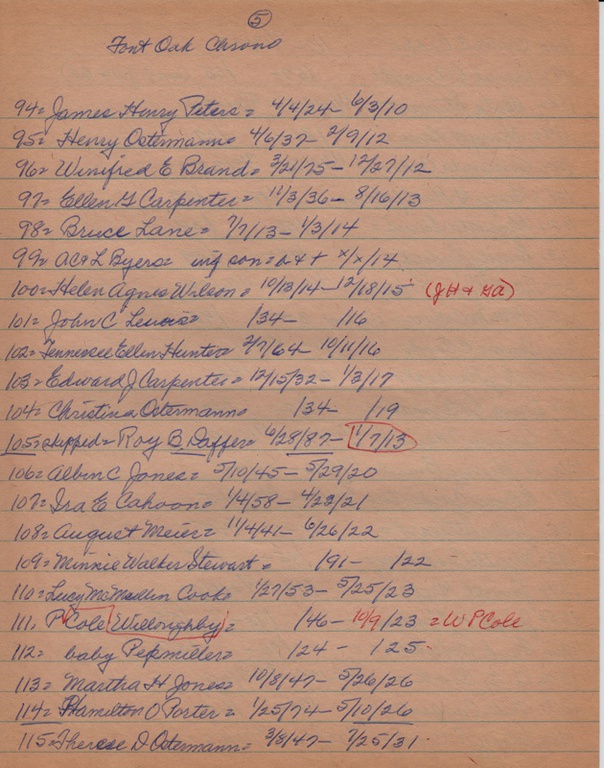 5
Font Oak Chrono
94= James Henry Peters = 4/4/24 - 6/3/10
95= Henry Ostermann = 4/6/37 - 2/9/12
96= Winifred E Brand = 3/21/75 - 12/27/12
97= Ellen G Carpenter = 11/3/36 - 8/16/13
98= Bruce Lane = 7/7/13 - 1/3/14
99= AC & L Byers = inf son = b & + x/x/14
100= Helen Agnes Wilson = 10/13/14 - 12/18/15 (JH &
101= John C Lewis = /34 - /16
102= Tennessee Ellen Hunter = 2/7/64 - 10/11/16
103= Edward J Carpenter = 12/15/32 - 1/3/17
104= Christina Ostermann = /34 - /19
105= skipped = Roy B Daffer = 6/28/87 - 1/7/13
106= Albin C Jones = 5/10/45 - 5/29/20
107= Ira E Cahoon = 1/4/58 - 4/23/21
108= August Meier = 11/4/41 - 6/26/22
109= Minnie Walker Stewart = /91 - /22
110= Lucy McMullin Cook = 1/27/53 - 5/25/23
111. P Cole (Willoughby) = /46 - 10/9/23 = W P Cole
112= baby Pepmiller = /24 - /25
113= Martha H Jones = 10/8/47 - 5/26/26
114= Hamilton O Porter = 1/25/74 - 5/10/26
115= Therese D Ostermann = 3/8/47 - 7/25/31